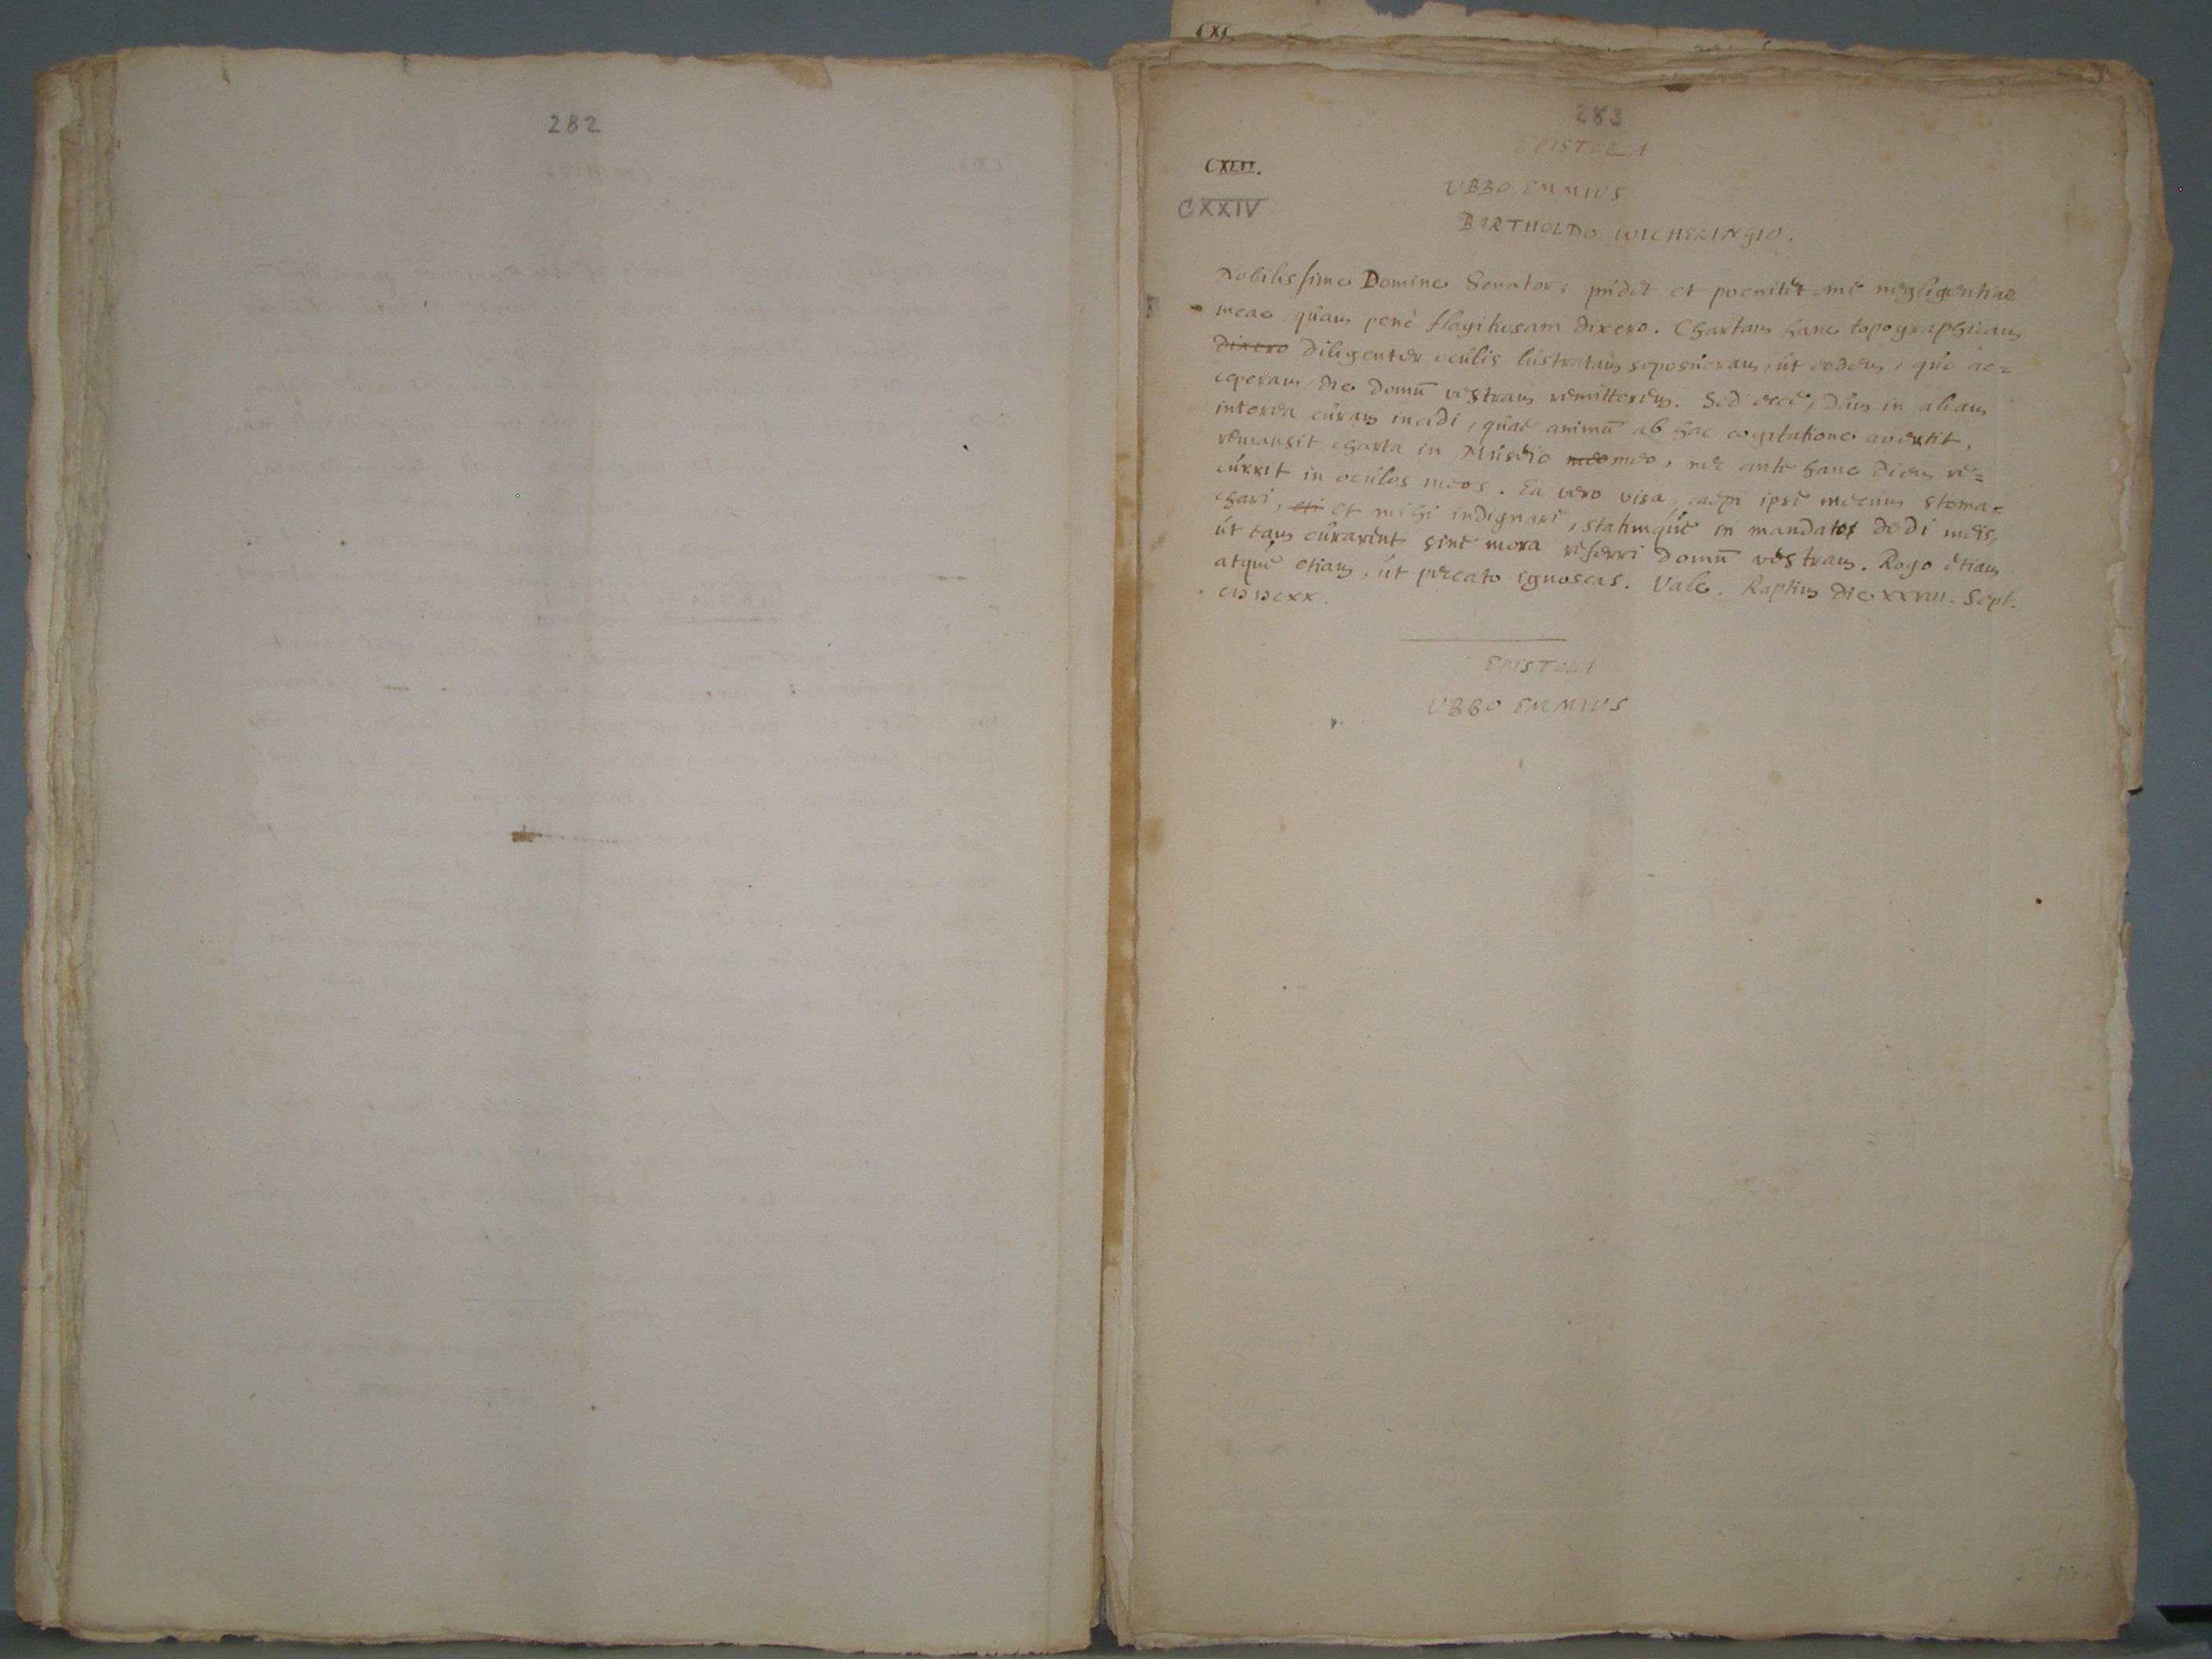 282
CXL
283
EPISTOLA
CXLII.
CXXIV
UBBO EMMIUS
BARTHOLDO WICHERINGIO.
Nobilissime Domine Senator; pudet et poenitet me negligentiae
meae, quam penè flagitiosam dixero. Chartam hanc topographicam
dixero diligenter oculis lustratam seposueram, ut eodem, quo ac=
ceperam, die domū vestram remitterem. Sed ecce, dum in aliam
interea curam incidi, quae animū ab hac cogitatione avertit,
remansit charta in Museio meo meo, nec ante hanc diem re=
currit in oculos meos. Ea vero visa, caepi ipse mecum stoma=
chari, eti et mihi indignari, statimque in mandatos dedi meis,
ut eam curarent sine mora referri domū vestram. Rogo etiam
atque etiam, ut peccato ignoscas. Vale. Raptim die XXVIII. Sept.
CIƆ IƆCXX.
EPISTOLA
UBBO EMMIUS